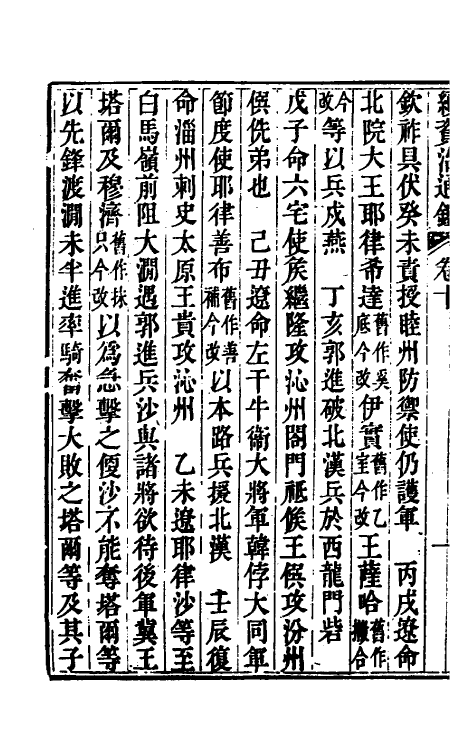 續資治通鑑 卷十
欽祚具伏癸未責授睦州防禦使仍護軍 丙戌遼命
北院大王耶律希達舊作奚底今改伊實舊作乙室今改王薩哈舊作撒合
今改等以兵戍燕 丁亥郭進破北漢兵於西龍門砦
戊子命六宅使侯繼隆攻沁州閤門祗候王僎攻汾州
僎侁弟也 己丑遼命左千牛衞大將軍韓侼大同軍
節度使耶律善布舊作善補今改以本路兵援北漢 壬辰復
命淄州刺史太原王貴攻沁州 乙未遼耶律沙等至
白馬嶺前阻大澗遇郭進兵沙與諸將欲待後軍冀王
塔爾及穆濟舊作抹只今改以爲急擊之便沙不能奪塔爾等
以先鋒渡澗未半進率騎奮擊大敗之塔爾等及其子